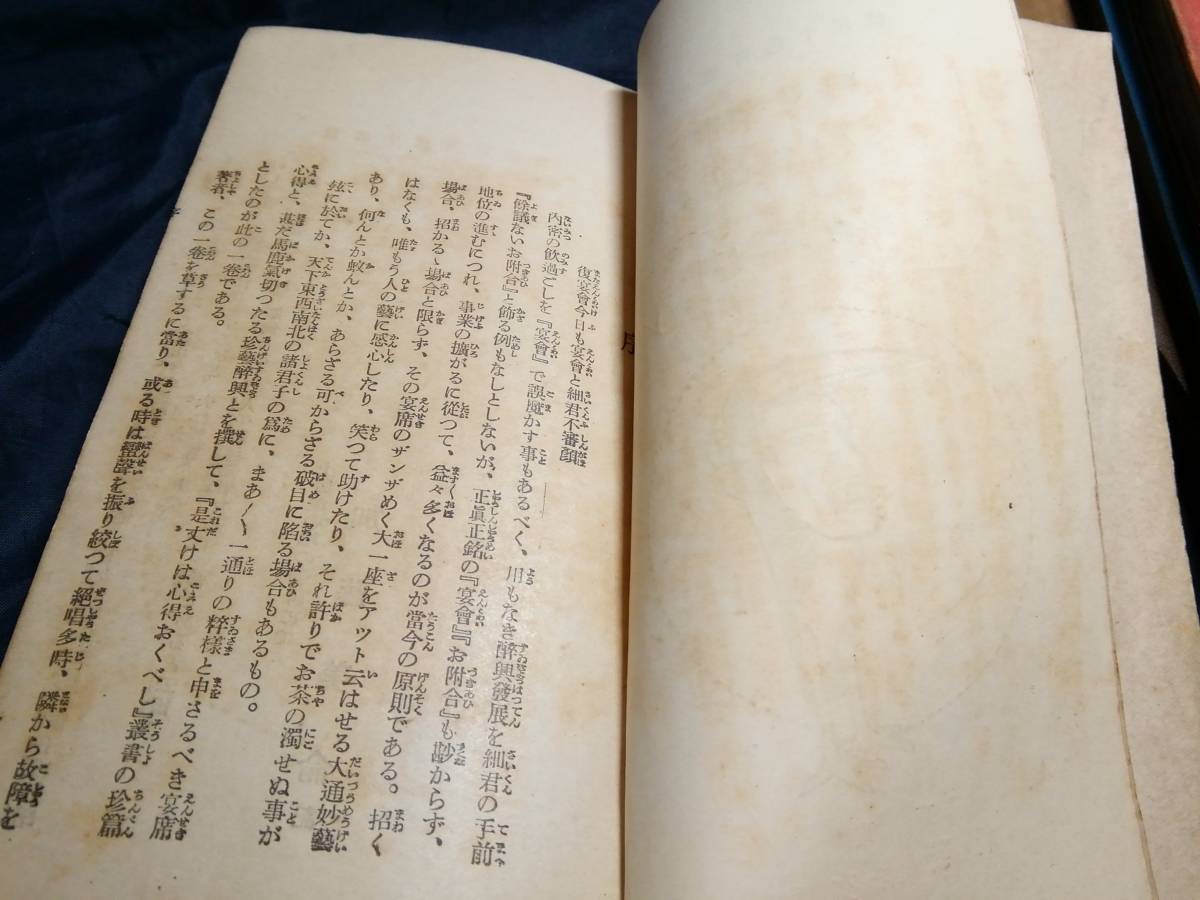 序
復宴會今日も宴會と細君不審顏
內密の飮過ごしを『宴會』で誤魔かす事もあるべく、用もなき醉興發展を細君の手前
『餘議ないお附合』と飾る例もなしとしないが、正眞正銘の『宴會』『お附合』も尠からず、
地位の進むにつれ、事業の擴がるに從つて、益々多くなるのが當今の原則である。招く
場合、招かるゝ場合と限らず、その宴席のザンザめく大一座をアツト云はせる大通妙藝
はなくも、唯もう人の藝に感心したり、笑つて助けたり、それ許りでお茶の濁せぬ事が
あり、何んとか蚊んとか、あらざる可からざる破目に陷る場合もあるもの。
玆に於てか、天下東西南北の諸君子の爲に、まあ〳〵一通りの粹樣と申さるべき宴席
心得と、甚だ馬鹿氣切つたる珍藝醉興とを撰して、『是丈けは心得おくべし』叢書の珍篇
としたのが此の一卷である。
著者、この一卷を草するに當り、或る時は蠻聲を振り絞つて絕唱多時、隣から故障を